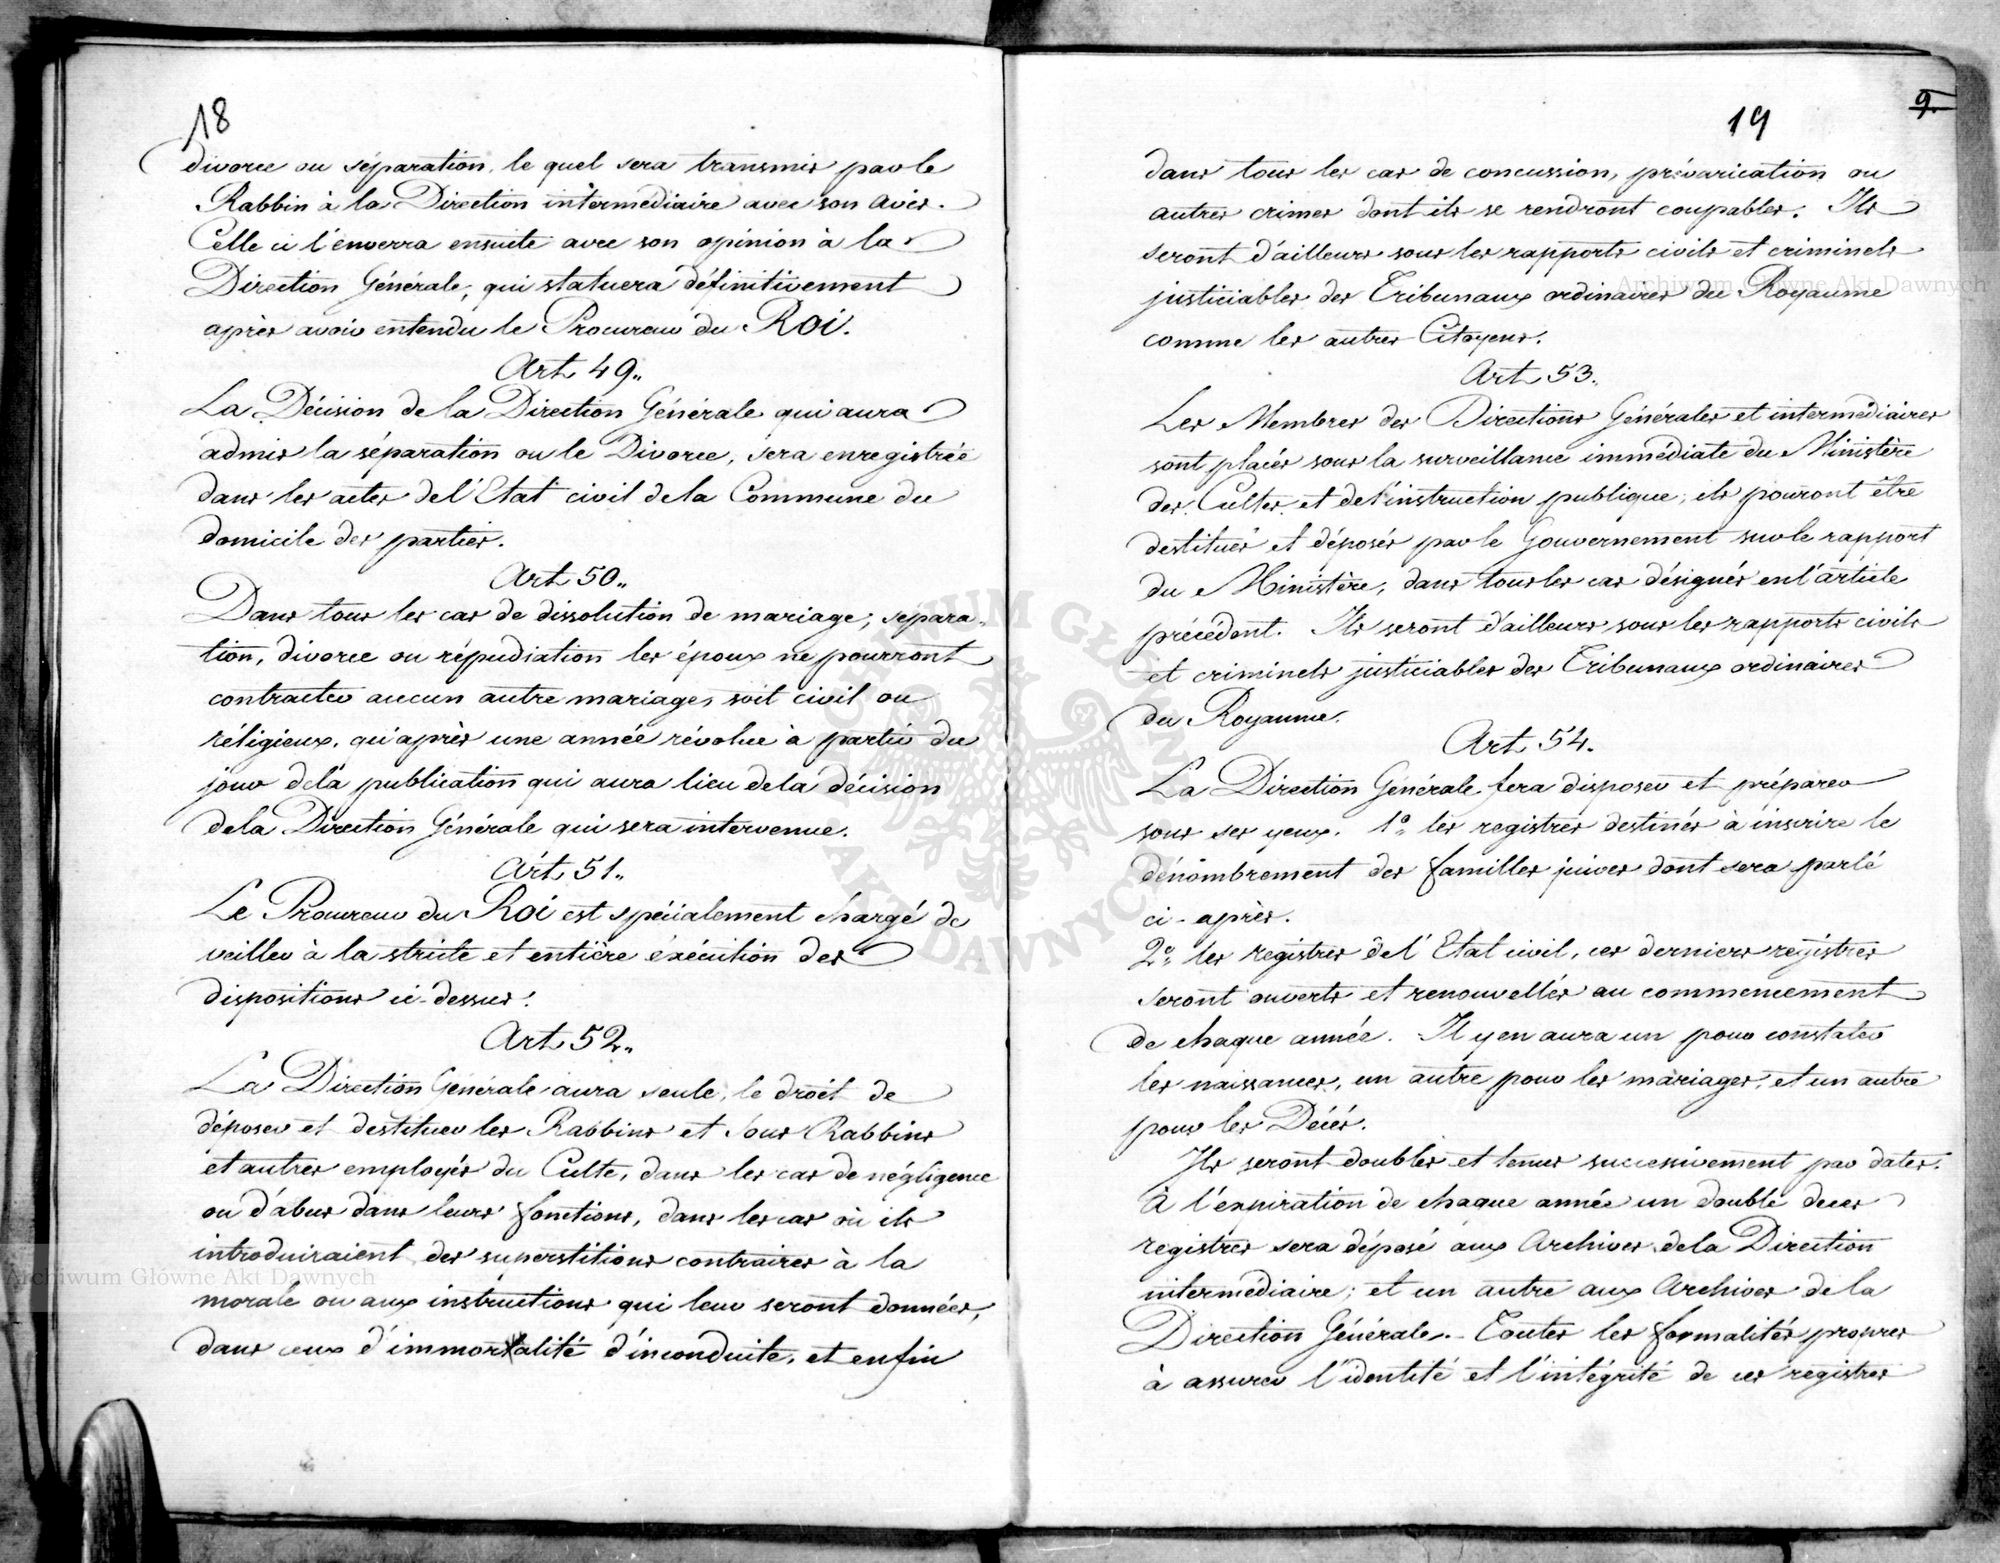 18
divorce ou séparation, le quel sera transmis par le
Rabbin à la Direction intermédiaire avec son avis.
Celle ci l'enverra ensuite avec son opinion à la
Direction Générale, qui statuera définitivement
après avoir entendu le Procureur du Roi.
Art. 49.
La Décision de la Direction Générale qui aura
admis la séparation ou le Divorce, sera enregistrée
dans les actes de l'Etat civil de la Commune du
domicile des parties.
Art. 50.
Dans tous les cas de dissolution de mariage, sépara-
tion, divorce ou répudiation les époux ne pourront
contracter aucun autre mariage, soit civil ou
réligieux, qu'après une année révolue à partir du
jour de la publication qui aura lieu de la décision
de la Direction Générale qui sera intervenue.
Art. 51.
Le Procureur du Roi est spécialement chargé de
veiller à la stricte et entière éxécution des
dispositions ci-dessus.
Art. 52.
La Direction Générale aura seule, le droit de
déposer et destituer les Rabbins et Sous Rabbins
et autres employés du Culte, dans les cas de négligence
ou d'abus dans leurs fonctions, dans les cas où ils
introduiraient des superstitions contraires à la
morale ou aux instructions qui leur seront données,
dans ceux d'immortalité d'inconduite, et enfin
19
9.
dans tous les cas de concussion, prévarication ou
autres crimes dont ils se rendront coupables. Ils
seront d'ailleurs sous les rapports civils et criminels
justiciables des Tribunaux ordinaires du Royaume
comme les autres Citoyens.
Art. 53.
Les Membres des Directions Générales et intermédiaires
sont placés sous la surveillance immédiate du Ministère
des Cultes et de l'instruction publique, ils pourront être
destitués et déposés par le Gouvernement sur le rapport
du Ministère, dans tous les cas désignés en l'article
précédent. Ils seront d'ailleurs sous les rapports civils
et criminels justiciables des Tribunaux ordinaires
du Royaume.
Art. 54.
La Direction Générale fera disposer et préparer
sous ses yeux. 1º les registres destinés à inscrire le
dénombrement des familles juives dont sera parlé
ci-après.
2º les registres de l'Etat civil, ces derniers registres
seront ouverts et renouvellés au commencement
de chaque année. Il y en aura un pour constater
les naissances, un autre pour les mariages, et un autre
pour les Décés.
Ils seront doubles et tenus successivement par dates.
À l'expiration de chaque année un double de ces
registres sera déposé aux Archives de la Direction
intermédiaire; et un autre aux Archives de la
Direction Générale. Toutes les formalités propres
à assurer l'identité et l'intégrité de ces registres
Archiwum Główne Akt Dawnych
Archiwum Główne Akt Dawnych
ARCHIWUM GŁÓWNE AKT DAWNYCH